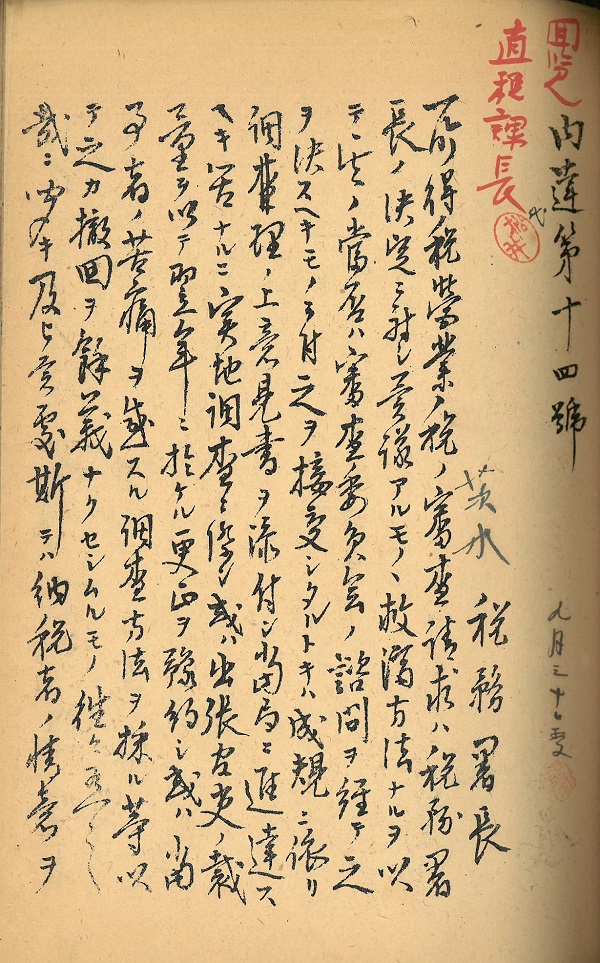 回覧
直税課長
代
内蓮第十四號
七月三十日受
茨水
税務署長
一所得税營業税ノ審査請求ハ税務署
長ノ決定ニ對シ異議アルモノヽ救濟方法ナルヲ以
テ其ノ當否ハ審査委員会ノ諮問ヲ經テ之
ヲ決スヘキモノニ付之ヲ接受シタルトキハ成規ニ依リ
調査理ノ上意見書ヲ添付シ當局ニ進達ス
ヘキ筈ナルニ実地調査ニ際シ或ハ出張官吏ノ裁
量ヲ以テ翌年ニ於ケル更正ヲ豫約シ或ハ當
事者ノ苦痛ヲ感スル調査方法ヲ採ル等以
テ之カ撤回ヲ餘義ナクセシムルモノ往々
哉ニ聞キ及ヒ候處斯テハ納税者ノ情意ヲ